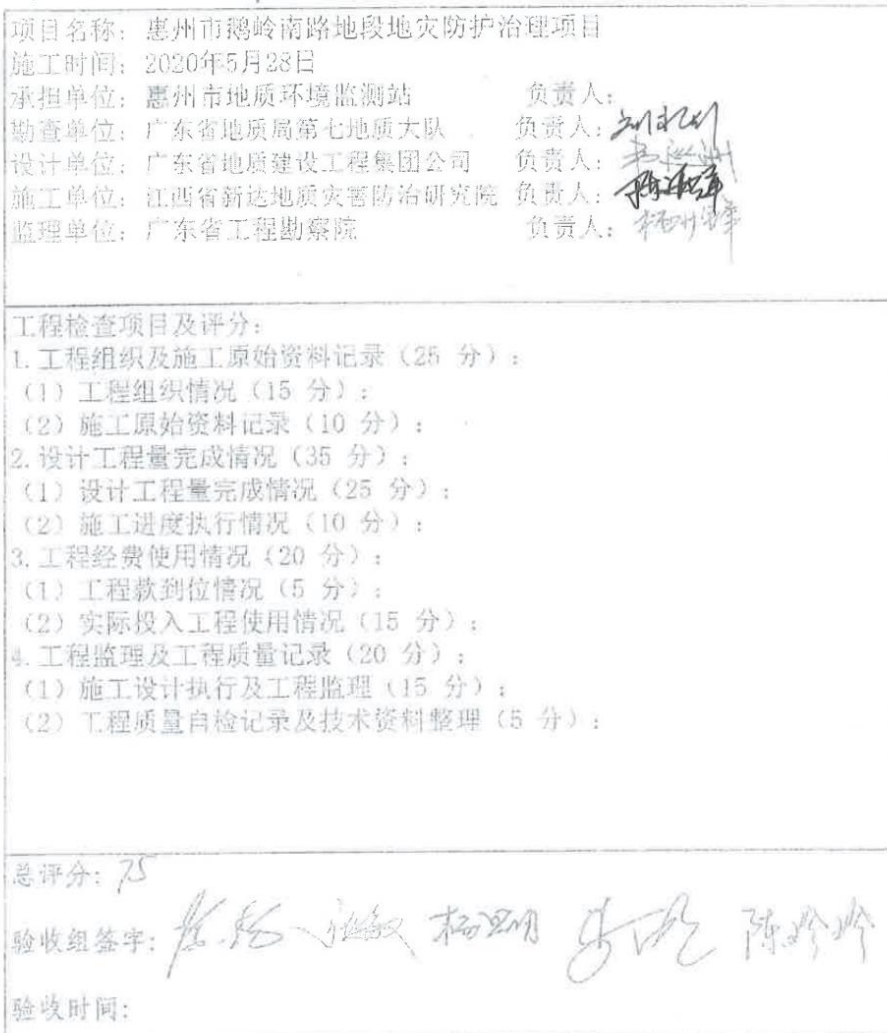 项目名称：惠州市鹅岭南路地段地灾防护治理项目
施工时间：2020年5月28日
承担单位：惠州市地质环境监测站 负责人：
勘查单位：广东省地质局第七地质大队 负责人：
设计单位：广东省地质建设工程集团公司 负责人：
施工单位：江西省新达地质灾害防治研究院 负责人：
监理单位：广东省工程勘察院 负责人：
工程检查项目及评分：
1.工程组织及施工原始资料记录（25 分）：
（1）工程组织情况（15 分）：
（2）施工原始资料记录（10 分）：
2.设计工程量完成情况（35 分）：
（1）设计工程量完成情况（25 分）：
（2）施工进度执行情况（10 分）：
3.工程经费使用情况（20 分）：
（1）工程款到位情况（5 分）：
（2）实际投入工程使用情况（15 分）：
4.工程监理及工程质量记录（20 分）：
（1）施工设计执行及工程监理（15 分）：
（2）工程质量自检记录及技术资料整理（5 分）：
总评分：75
验收组签字： 陈玲玲
验收时间：